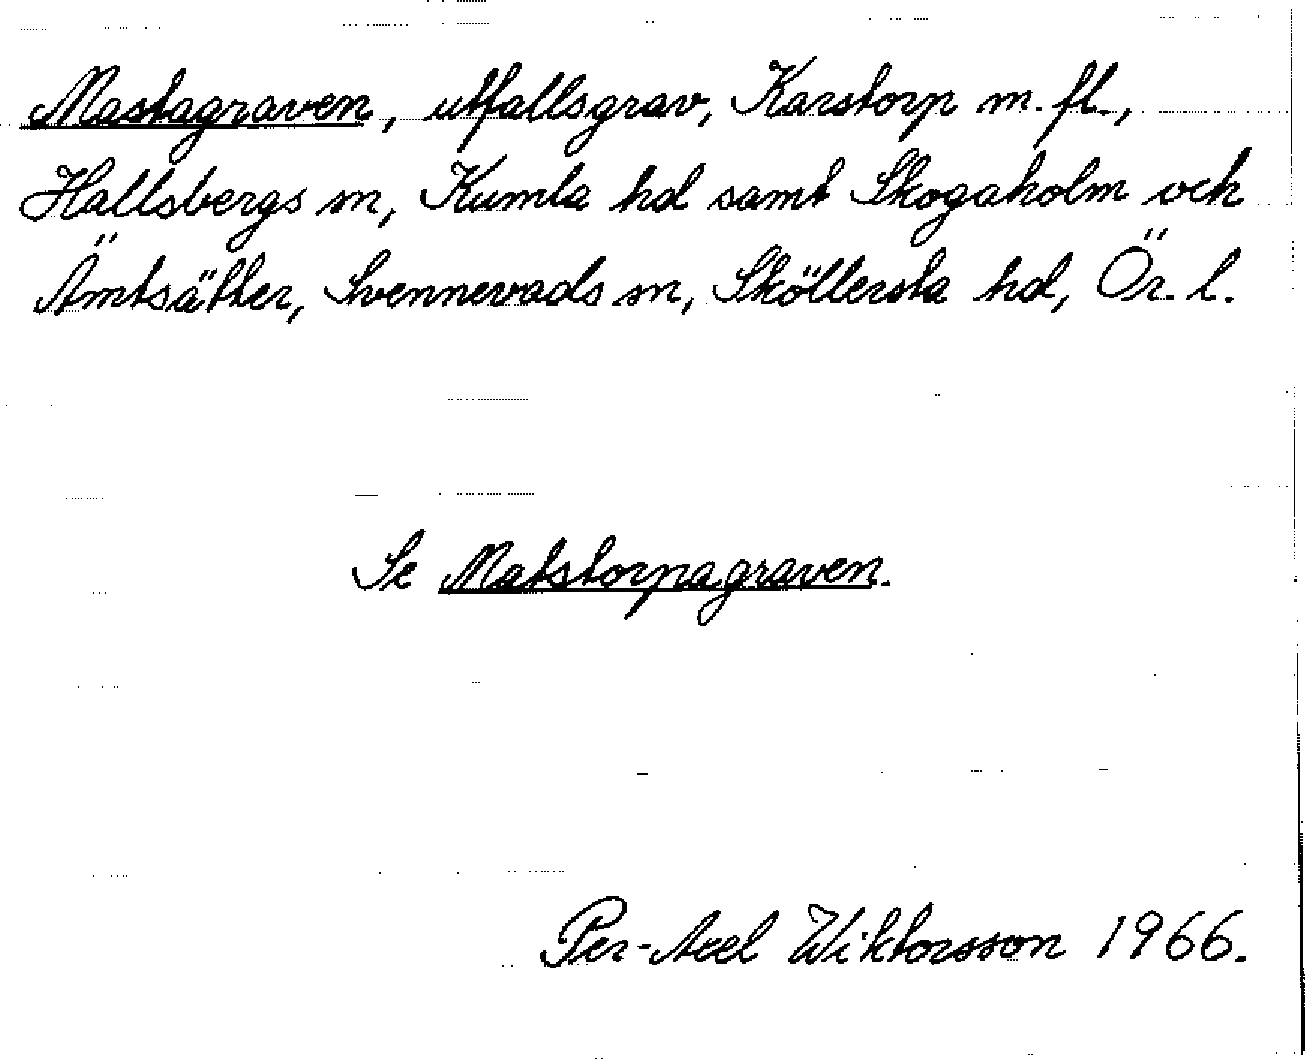 Mastagraven, utfallsgrav, Karstorp m. fl.,
Hallsbergs sn, Kumla hd samt Skogaholm och
Ämtsätter, Svennevads sn, Sköllersta hd, Ör. l.
Se Matstorpagraven.
Per-Axel Wiktorsson 1966.